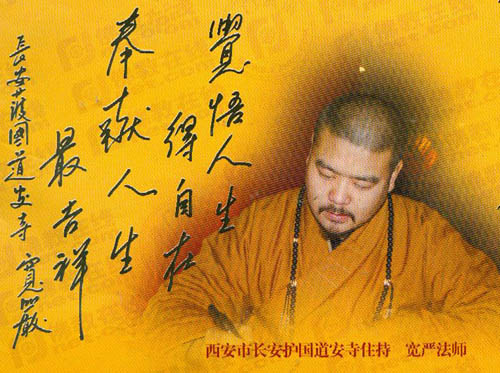 覺悟人生
得自在
奉獻人生
最吉祥
長安護國道安寺 寬嚴
西安市长安护国道安寺住持 宽严法师